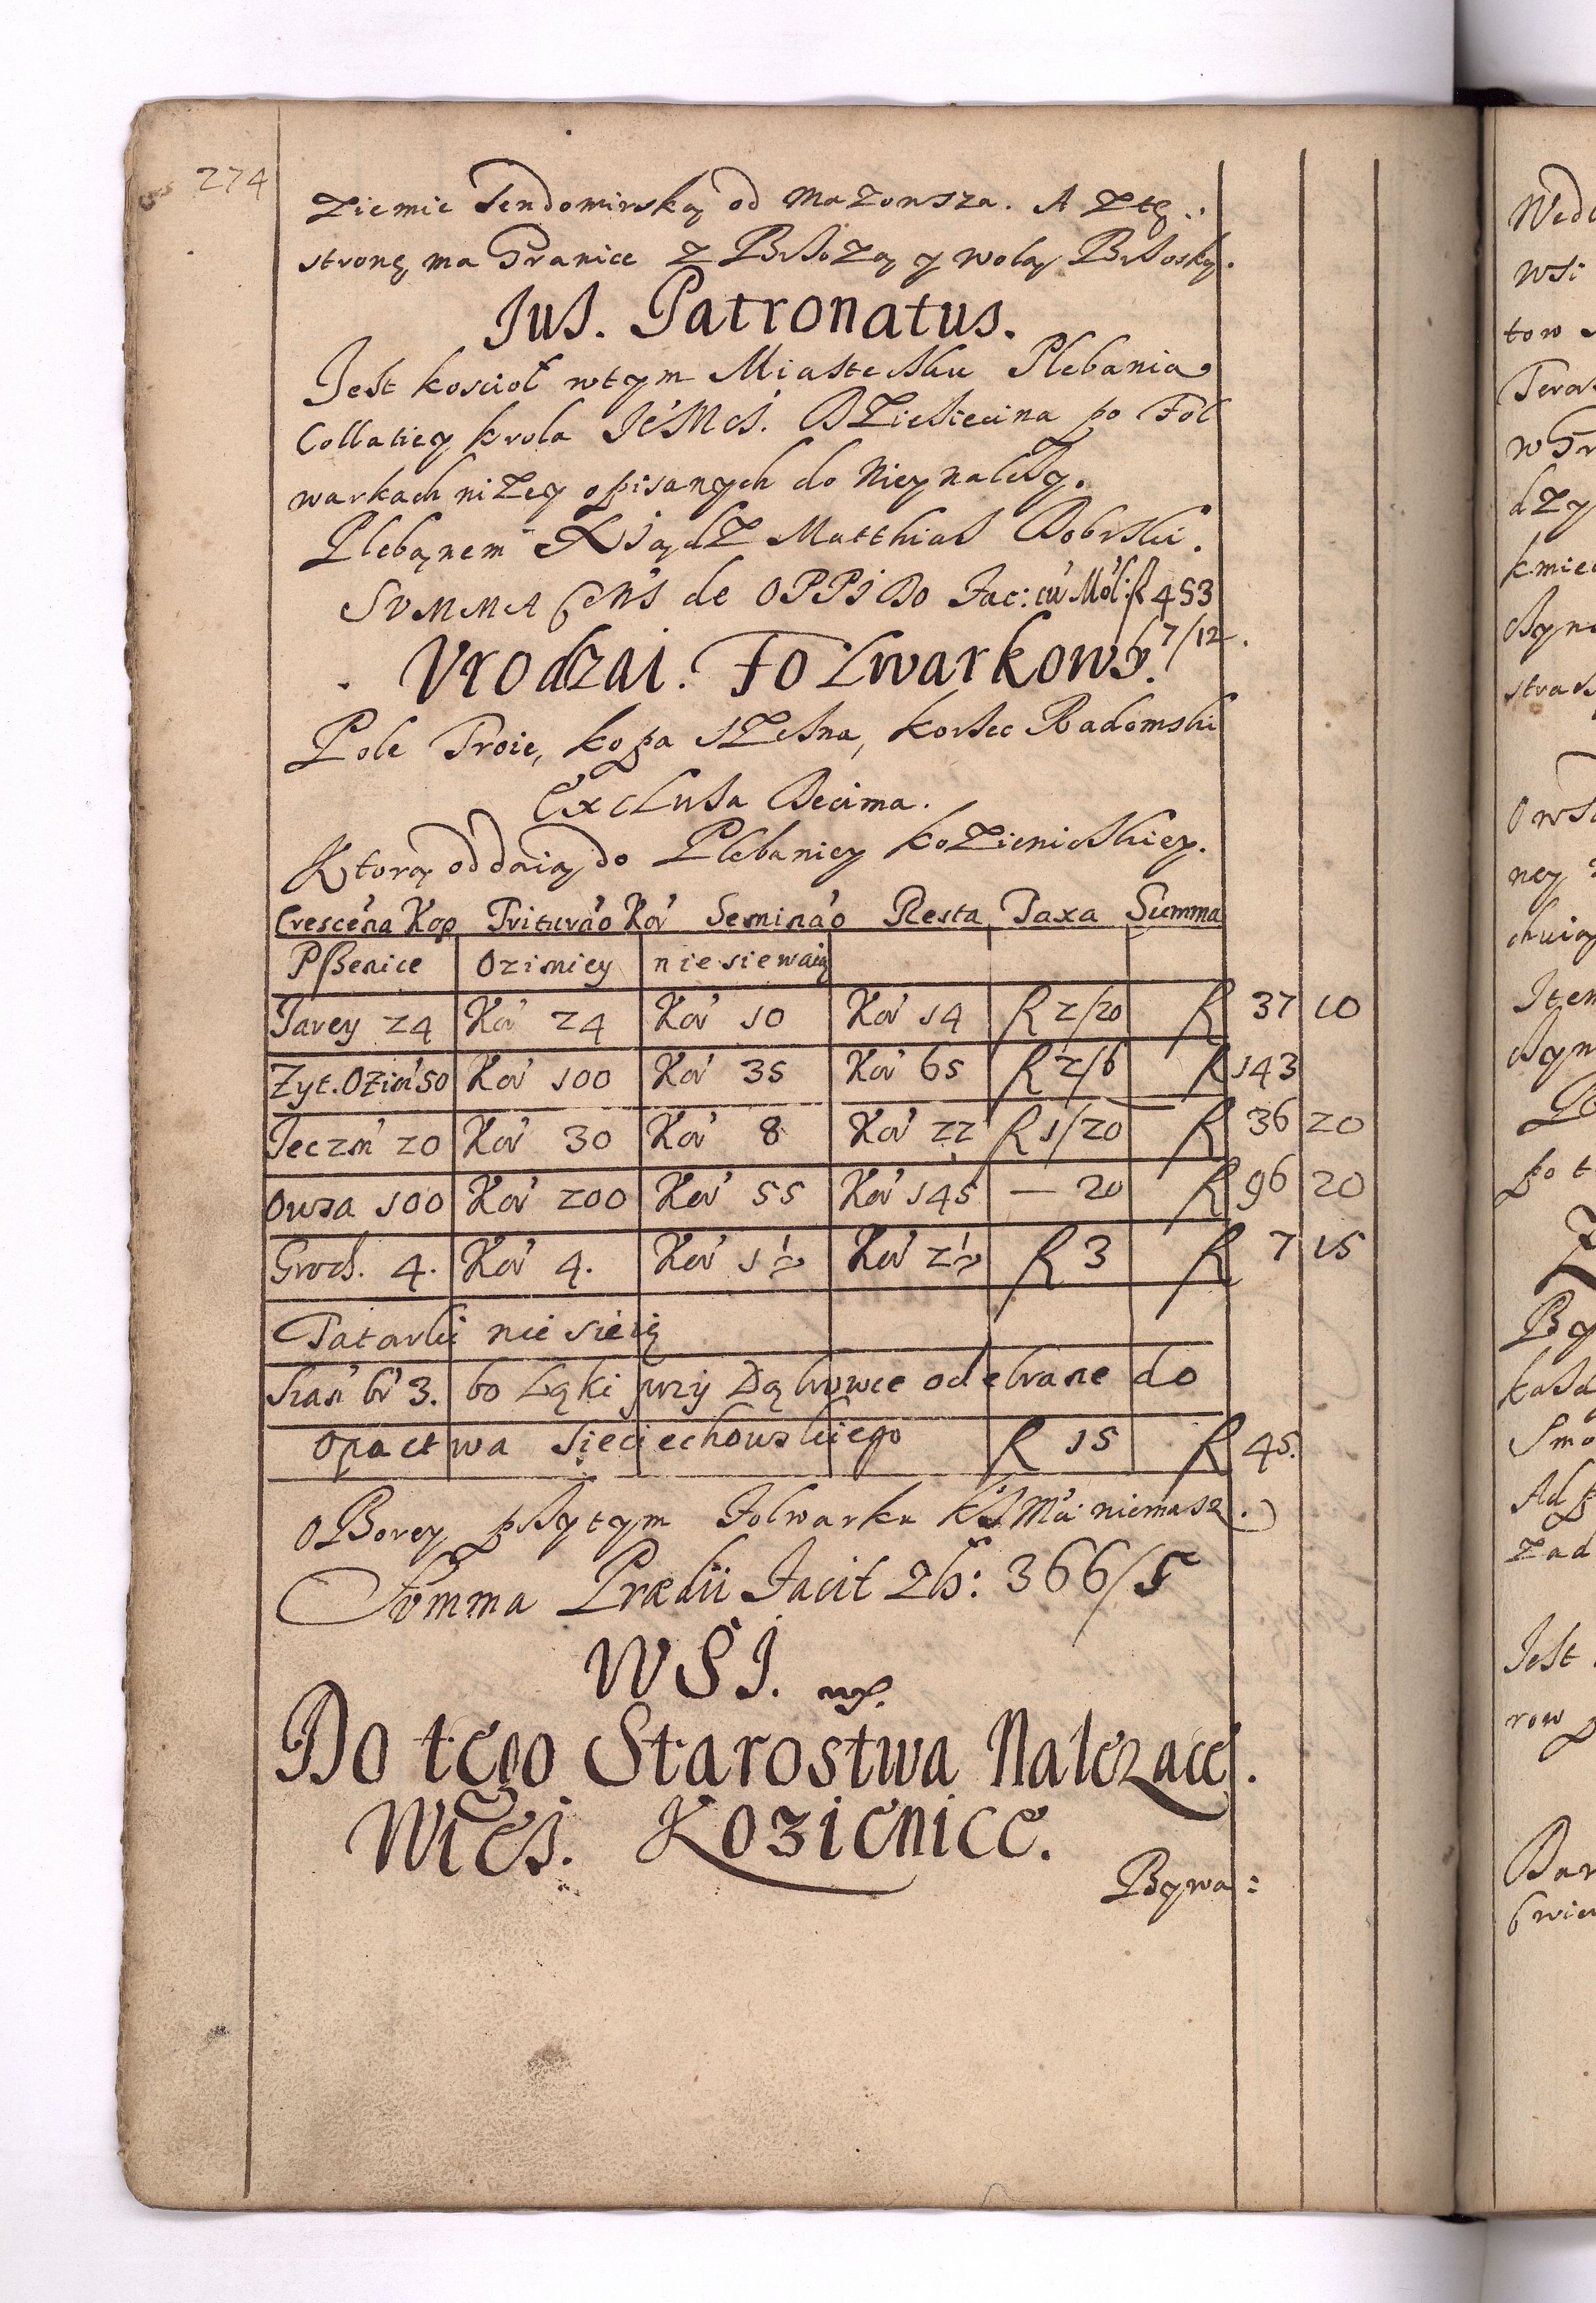 274
Ziemie Sendomirską od Mazowsza. A Ztę
stronę ma Granice z Brzozą y wolą Brzoską.
Jus. Patronatus.
Jest kościoł wtym Miasteczku Plebania
Collatiey krola JéMći. Dziesiecina po Fol
warkach niżey opisanych do Niey należy.
Plebanem Xiądz Matthias Bobrski.
SUMMA Cens de OPPiDo Fac: cu Mol: R 453
7/12.
Vrodzai. Folwarkowy.
Pole Troie, kopa szesna, korzec Radomski
Exclusa Decima.
Ktorą oddaią do Plebaniey kozienickiey.
Crescena Kop Trituráo Kor Semináo Resta Taxa Summa
Pszenice Ozimiey niesiewaią
Jarey 24 Kor 24 Kor 10 Kor 14 R 2/20 R 37 10
Zyt. Ozim 50 Kor 100 Kor 35 Kor 65 R 2/6 R 143
Jeczm 20 Kor 30 Kor 8 Kor 22 R 1/20 R 36 20
Owsa 100 Kor 200 Kor 55 Kor 145 — 20 R 96 20
Groch. 4. Kor 4. Kor 1½ Kor 2½ R 3 R 7 15
Tatarki nie sieią
Sian br 3. bo Łąki przy Dąbrowce odebrane do
Opactwa Sieciechowskiego R 15 R 45.
OBorey pszytym Folwarku niemasz.
Summa Prædii Facit 366/5
WSI.
Do tego Starostwa Należace.
Wies. Kozienice.
Bywa:
Wedł
wsi
tow
Teras
w Gr
dzy
kmiec
stras
Item
po t
By
każd
Smo
Ad p
zad
Jest
row
Bar